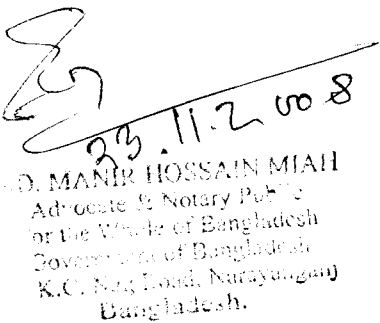 23.11.2008
D. MANIR HOSSAIN MIAH
Advocate & Notary Public
or the Whole of Bangladesh
Government of Bangladesh
K.C. Nag Road, Narayanganj
Bangladesh.